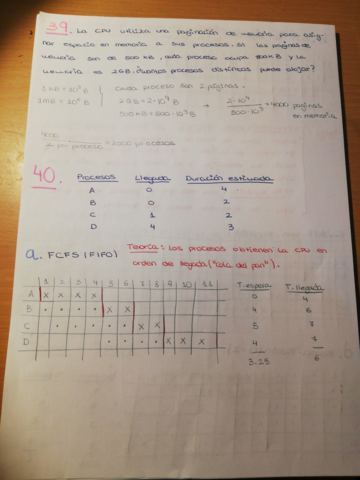 39. La CPU utiliza una paginación de memoria para asig-
nar espacio en memoria a sus procesos. Si las páginas de
memoria son de 500 KB, cada proceso ocupa 800 KB y la
memoria es 2GB. ¿Cuántos procesos distintos puede alojar?
1 KB = 10³ B | cada proceso son 2 páginas.
1MB = 10⁶ B | 2GB = 2·10⁹ B → 2·10⁹ / 500·10³ = 4000 páginas
500KB = 500·10³ B en memoria
= 2000 procesos
40. Procesos Llegada Duración estimada
A 0 4
B 0 2
C 1 2
D 4 3
a. FCFS (FIFO) Teoría: Los procesos obtienen la CPU en
orden de llegada ("cola del pan").
1 2 3 4 5 6 7 8 9 10 11 T. espera T. llegada
A X X X X 0 4
B · · · · X X 4 6
C · · · · · X X 5 7
D · · · · X X X 4 7
3.25 6